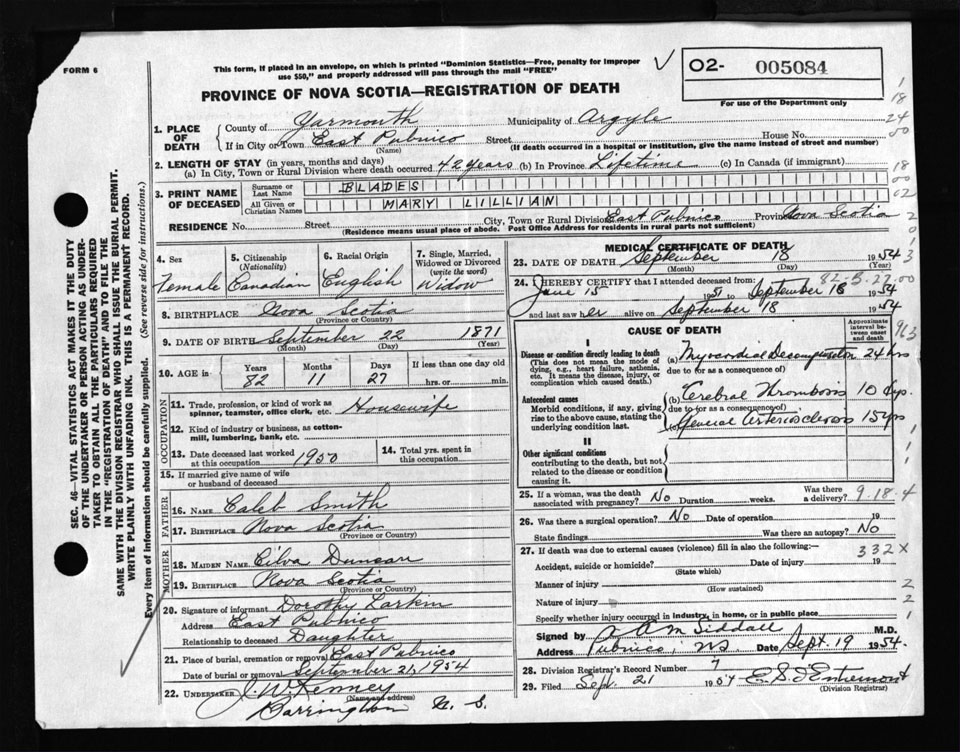 FORM 6
This form, if placed in an envelope, on which is printed "Dominion Statistics—Free, penalty for improper
use $50," and properly addressed will pass through the mail "FREE"
O2- 005084
For use of the Department only
PROVINCE OF NOVA SCOTIA—REGISTRATION OF DEATH
1. PLACE OF DEATH
County of Yarmouth Municipality of Argyle
If in City or Town East Pubnico Street House No.
(Name) (If death occurred in a hospital or institution, give the name instead of street and number)
2. LENGTH OF STAY (in years, months and days)
(a) In City, Town or Rural Division where death occurred 42 years (b) In Province Lifetime (c) In Canada (if immigrant)
3. PRINT NAME OF DECEASED
Surname or Last Name BLADES
All Given or Christian Names MARY LILLIAN
RESIDENCE No. Street City, Town or Rural Division East Pubnico Province Nova Scotia
(Residence means usual place of abode. Post Office Address for residents in rural parts not sufficient)
4. Sex Female
5. Citizenship (Nationality) Canadian
6. Racial Origin English
7. Single, Married, Widowed or Divorced (write the word) Widow
8. BIRTHPLACE Nova Scotia
(Province or Country)
9. DATE OF BIRTH September 22 1871
(Month) (Day) (Year)
10. AGE in Years Months Days If less than one day old
82 11 27 hrs. or min.
OCCUPATION
11. Trade, profession, or kind of work as spinner, teamster, office clerk, etc. Housewife
12. Kind of industry or business, as cotton-mill, lumbering, bank, etc.
13. Date deceased last worked at this occupation 1950
14. Total yrs. spent in this occupation
15. If married give name of wife or husband of deceased
FATHER
16. NAME Caleb Smith
17. BIRTHPLACE Nova Scotia
(Province or Country)
MOTHER
18. MAIDEN NAME Cilva Duncan
19. BIRTHPLACE Nova Scotia
(Province or Country)
20. Signature of informant Dorothy Larkin
Address East Pubnico
Relationship to deceased Daughter
21. Place of burial, cremation or removal East Pubnico
Date of burial or removal September 21, 1954
22. UNDERTAKER J. W. Kenney
(Name and address)
Barrington N. S.
MEDICAL CERTIFICATE OF DEATH
23. DATE OF DEATH September 18 1954
(Month) (Day) (Year)
24. I HEREBY CERTIFY that I attended deceased from:
June 15 1951 to September 18 1954
and last saw her alive on September 18 1954
CAUSE OF DEATH
Approximate interval between onset and death
I
Disease or condition directly leading to death
(This does not mean the mode of dying, e.g., heart failure, asthenia, etc. It means the disease, injury, or complication which caused death.)
(a) Myocardial Decompensation 24 hrs
due to (or as a consequence of)
Antecedent causes
Morbid conditions, if any, giving rise to the above cause, stating the underlying condition last.
(b) Cerebral Thrombosis 10 dys.
due to (or as a consequence of)
(c) General Arteriosclerosis 15 yrs
II
Other significant conditions
contributing to the death, but not related to the disease or condition causing it.
25. If a woman, was the death associated with pregnancy? No Duration weeks. Was there a delivery?
9-18-4
26. Was there a surgical operation? No Date of operation 19
State findings Was there an autopsy? No
27. If death was due to external causes (violence) fill in also the following:—
332X
Accident, suicide or homicide? Date of injury 19
(State which)
Manner of injury
(How sustained)
Nature of injury
Specify whether injury occurred in industry, in home, or in public place
Signed by A R M Siddall M.D.
Address Pubnico, NS Date Sept. 19 1954
28. Division Registrar's Record Number 7
29. Filed Sept. 21 1954 E. S. d'Entremont
(Division Registrar)
SEC. 46—VITAL STATISTICS ACT MAKES IT THE DUTY
OF THE UNDERTAKER OR PERSON ACTING AS UNDER-
TAKER TO OBTAIN ALL THE PARTICULARS REQUIRED
IN THE "REGISTRATION OF DEATH" AND TO FILE THE
SAME WITH THE DIVISION REGISTRAR WHO SHALL ISSUE THE BURIAL PERMIT.
WRITE PLAINLY WITH UNFADING INK. THIS IS A PERMANENT RECORD.
Every item of information should be carefully supplied. (See reverse side for instructions.)